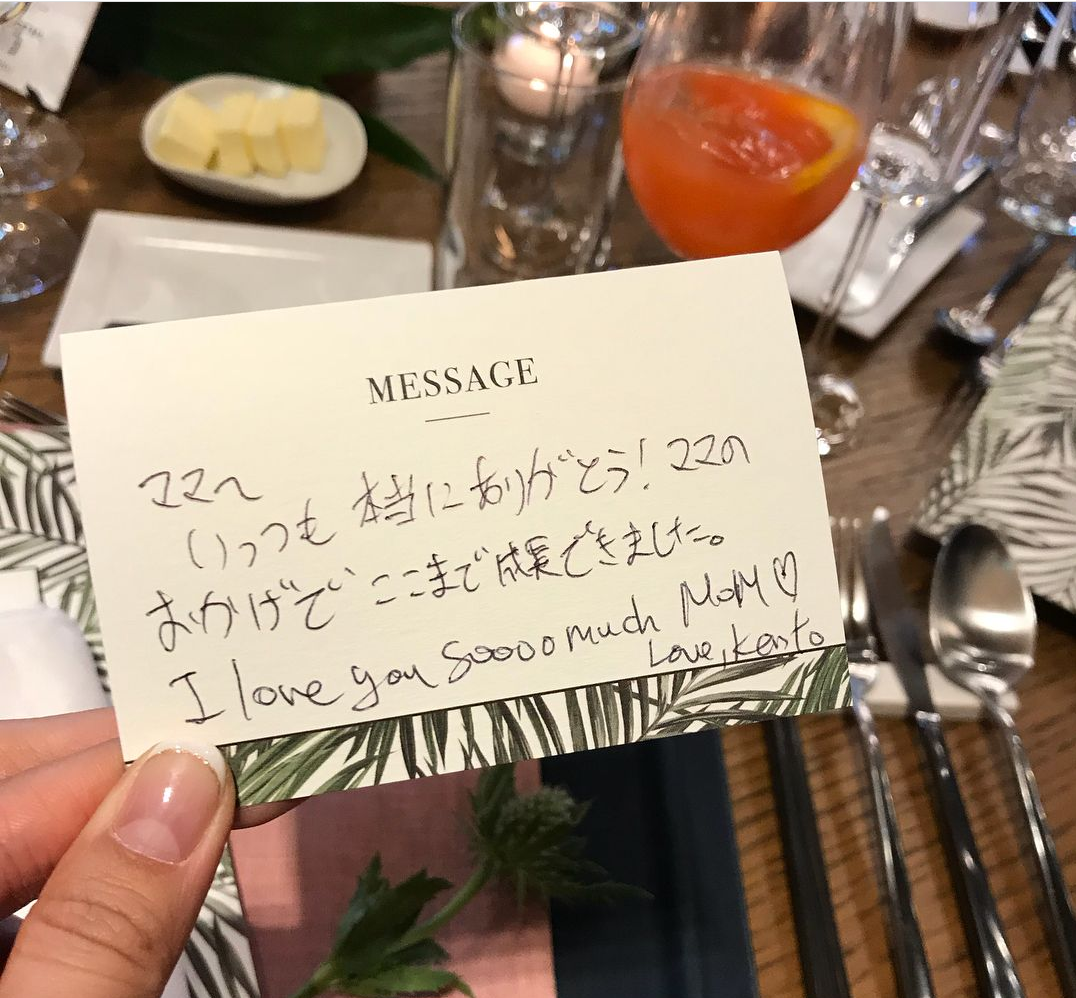 MESSAGE
ママへ
いっつも 本当にありがとう！ママの
おかげで ここまで成実できました。
I love you soooo much MoM♡
Love, Kento